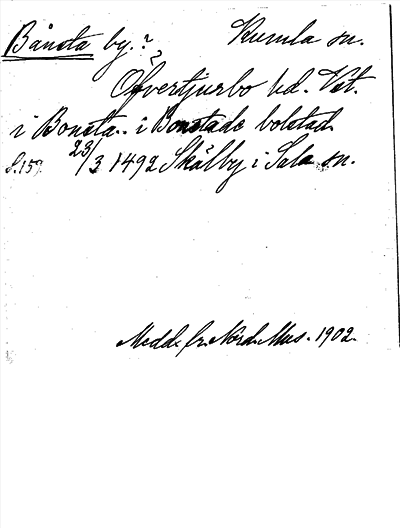 Bånsta by.? Kumla sn.
Öfvertjurbo hd. Vst.
i Bonsta.. i Bonstade bolstad
S.157. 23/3 1492 Skålby i Sala sn.
Medd. fr. Nord. Mus. 1902.